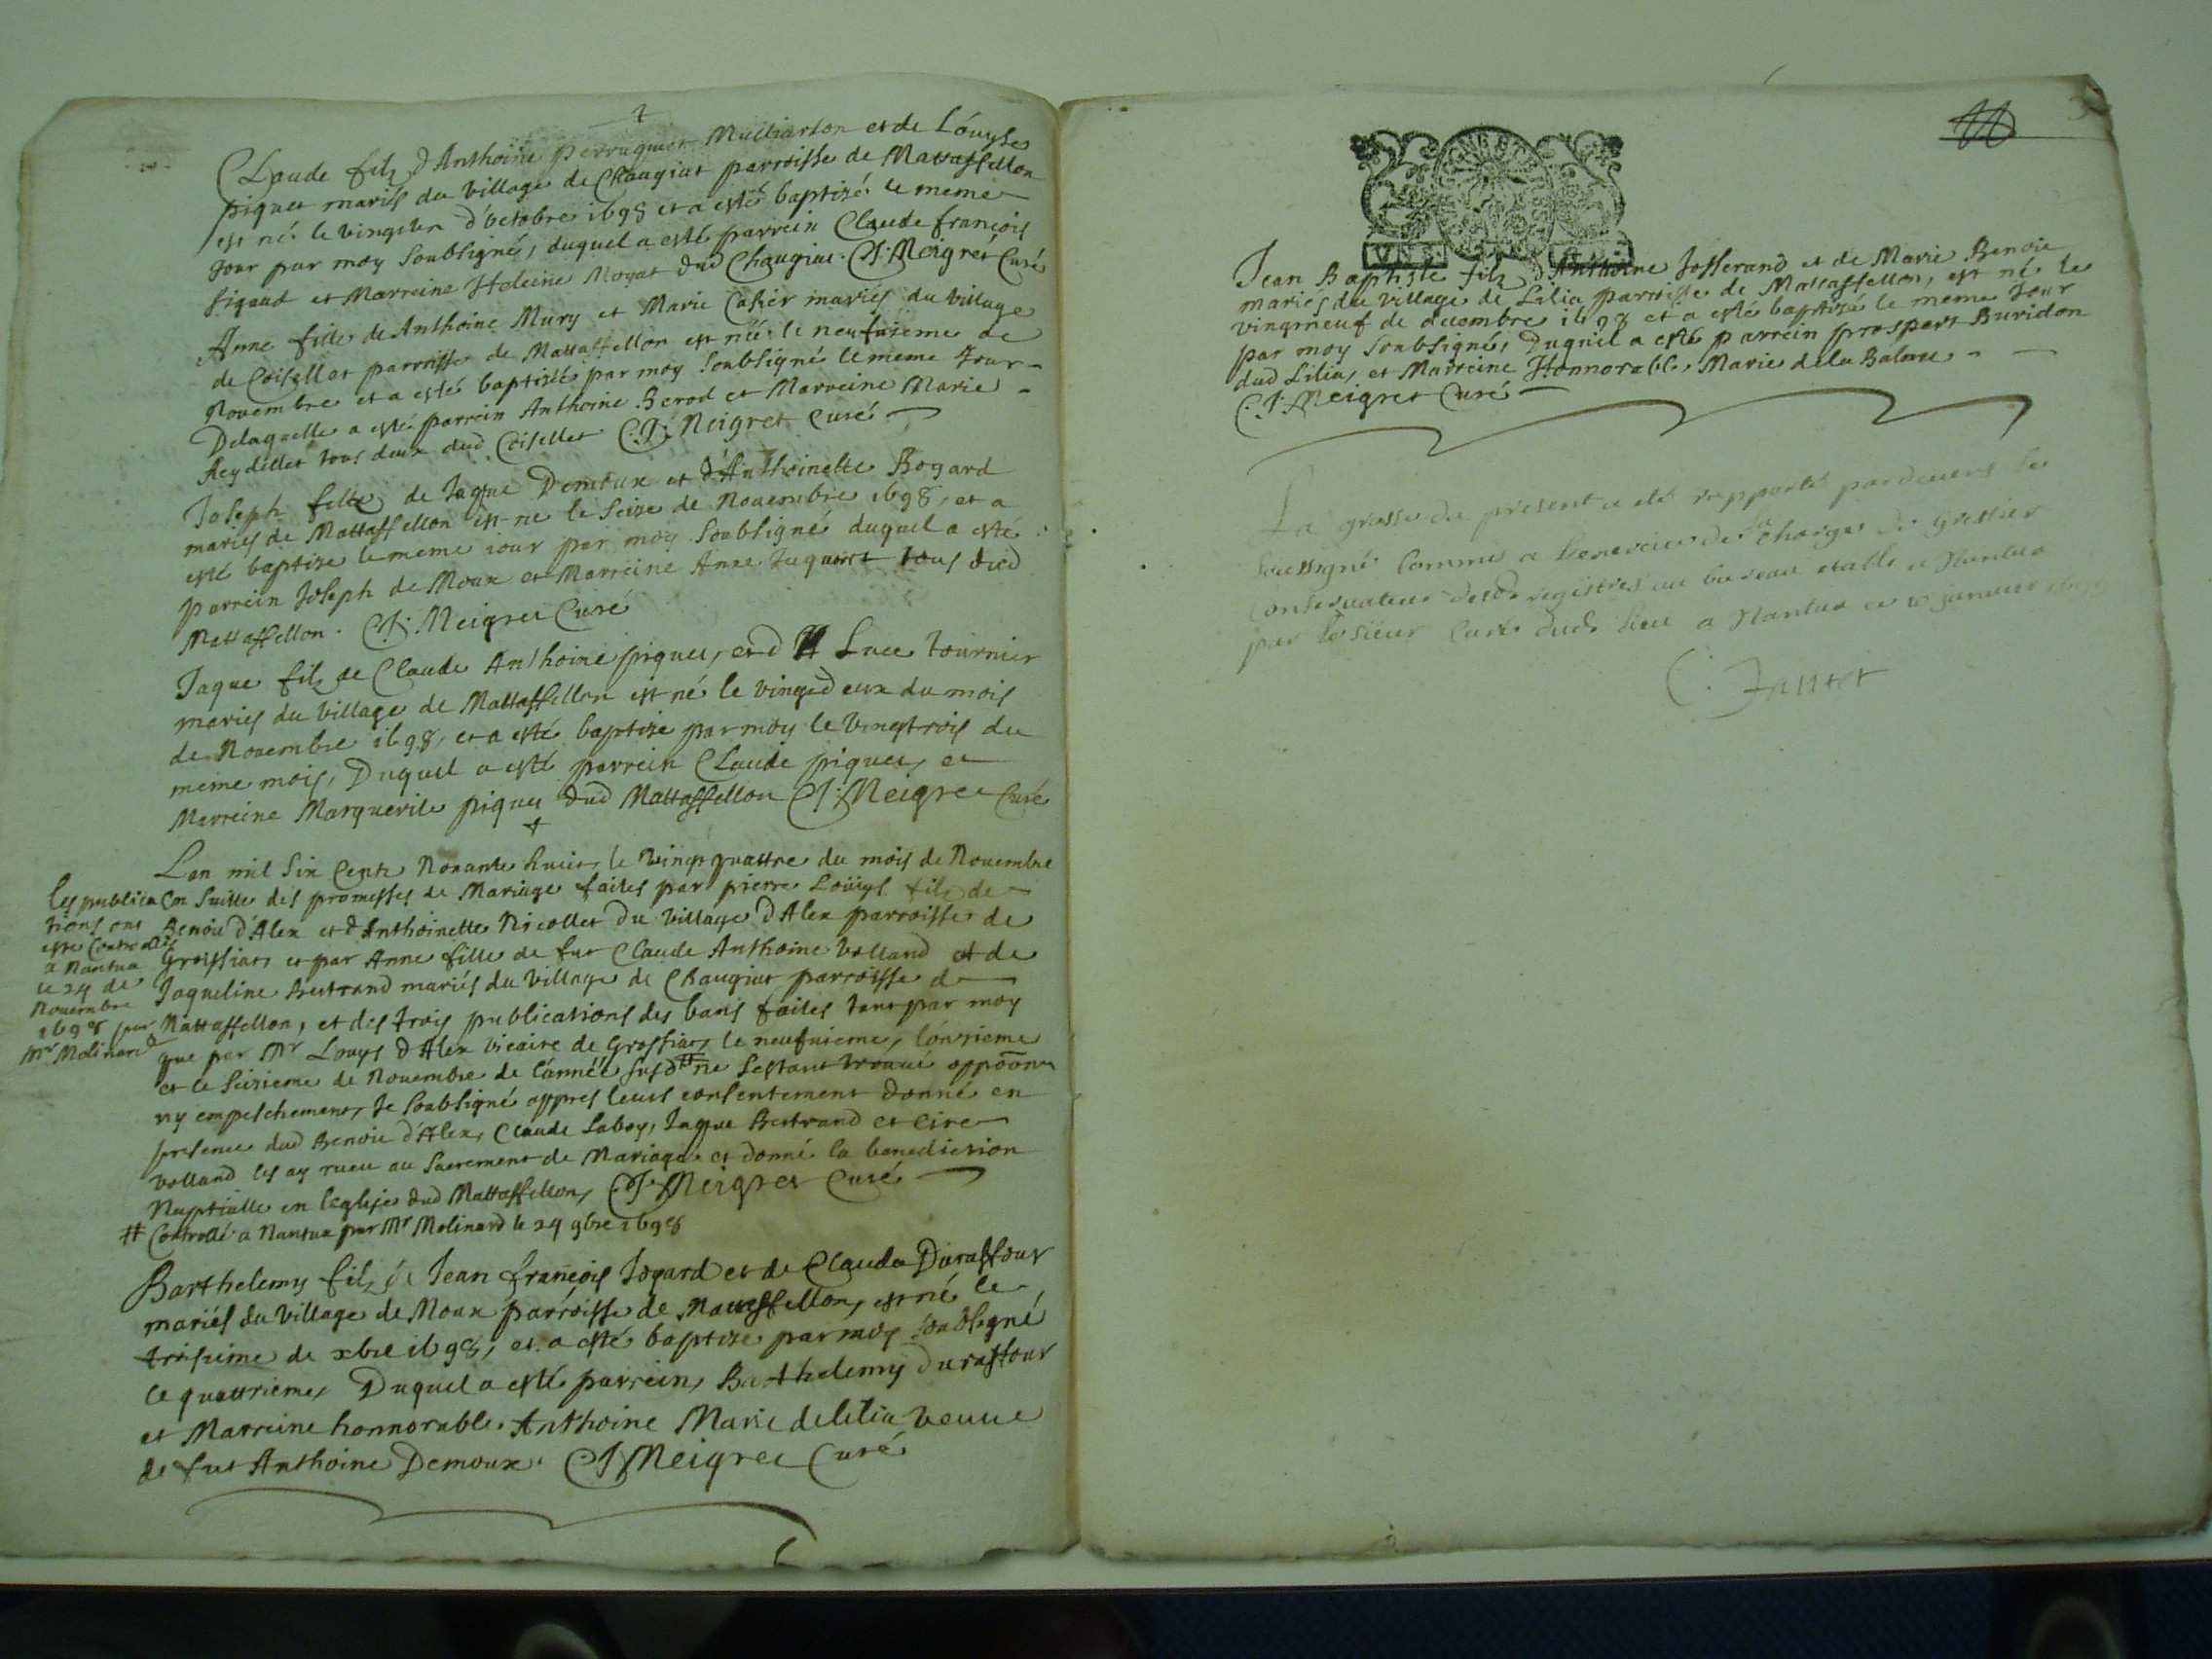 Claude filz d'Anthoine perruquet Muttiarson et de Louyse
piquet mariés du village de Chaugiat parroisse de Mattaffellon
est né le vingt un d'octobre 1698 et a esté baptizé le meme
Jour par moy Soubsigné, duquel a esté parrein Claude françois
figaud et Marreine Heleine Moyat dud Chaugiat. C J: Meigret Curé
Anne fille de Anthoine Mury et Marie Casier mariés du village
de Coisellet parroisse de Mattaffellon est née le neufuieme de
Nouembre et a esté baptizée par moy Soubsigné le meme Jour
Delaquelle a esté parrein Anthoine Berod et Marreine Marie
Reydellet tous deux dud Coisellet C: J: Meigret Curé
Joseph filz de Jaque Demoux et d'Anthoinette Bogard
mariés de Mattaffellon est ne le Seize de Nouembre 1698, et a
esté baptize le meme iour par moy Soubsigné duquel a esté
parrein Joseph de Moux et Marreine Anne Juquet tous dud
Mattaffellon. C J: Meigret Curé
Jaque filz de Claude Anthoine piquet, et d Luce tournier
mariés du village de Mattaffellon est né le vingt deux du mois
de Nouembre 1698, et a esté baptize par moy le vingt trois du
meme mois, Duquel a esté parrein Claude piquet, et
Marreine Marguerite piquet dud Mattaffellon C J: Meigret Curé
Lan mil Six Cents Nonante huict, le vingt quattre du mois de Nouembre
en Suitte des promesses de Mariage faites par pierre Loüys filz de
Benoit d'Alex et d'Anthoinette Nicollet du village d'Alex parroisse de
Groissiat, et par Anne fille de fut Claude Anthoine Volland et de
Jaqueline Bertrand mariés du village de Chaugiat parroisse de
Mattaffellon, et des trois publications des bans faites tant par moy
que par Mr Louys d'Alex Vicaire de Grossiat, le neufuieme, l'onzieme
et le Seizieme de Nouembre de l'année susd # ne Sestant trouué oppoōn
ny empeschement, Je Soubsigné appres leurs consentement donné en
presence dud Benoit d'Alex, Claude Laboy, Jaque Bertrand et Cire
Volland les ay receu au Sacrement de Mariage et donné la benediction
Nuptialle en leglise dud Mattaffellon, C J: Meigret Curé
# Controllé a Nantua par Mr Molinard le 24 9bre 1698
Les publica
tions ont
esté Controllés
a Nantua
le 24 de
Nouembre
1698 par
Mr Molinard
Barthelemy filz de Jean françois Jogard et de Clauda Duraffour
mariés du village de Moux parroisse de Mattaffellon, est né le
troisieme de xbre 1698, et a esté baptize par moy soubsigné
le quattrieme, Duquel a esté parrein, Barthelemy duraffour
et Marreine honnorable Anthoine Marie delilia veuue
de fut Anthoine Demoux. C J Meigret Curé
Jean Baptiste filz d'Anthoine Josserand et de Marie Benoit
mariés du village de Lilia parroisse de Mattaffellon, est né le
vingtneuf de decembre 1698 et a esté baptizé le meme Jour
par moy Soubsigné, Duquel a esté parrein prospert Buridon
dud Lilia, et Marreine Honnorable Marie dela Balme
C: J: Meigret Curé
La grosse du present a eté rapporté pardeuers le
soussigné Commis a lexercice de la charge de Greffier
Conseruateur desd registres au bureau etabli a Nantua
par le sieur Curé dud lieu a Nantua ce januier